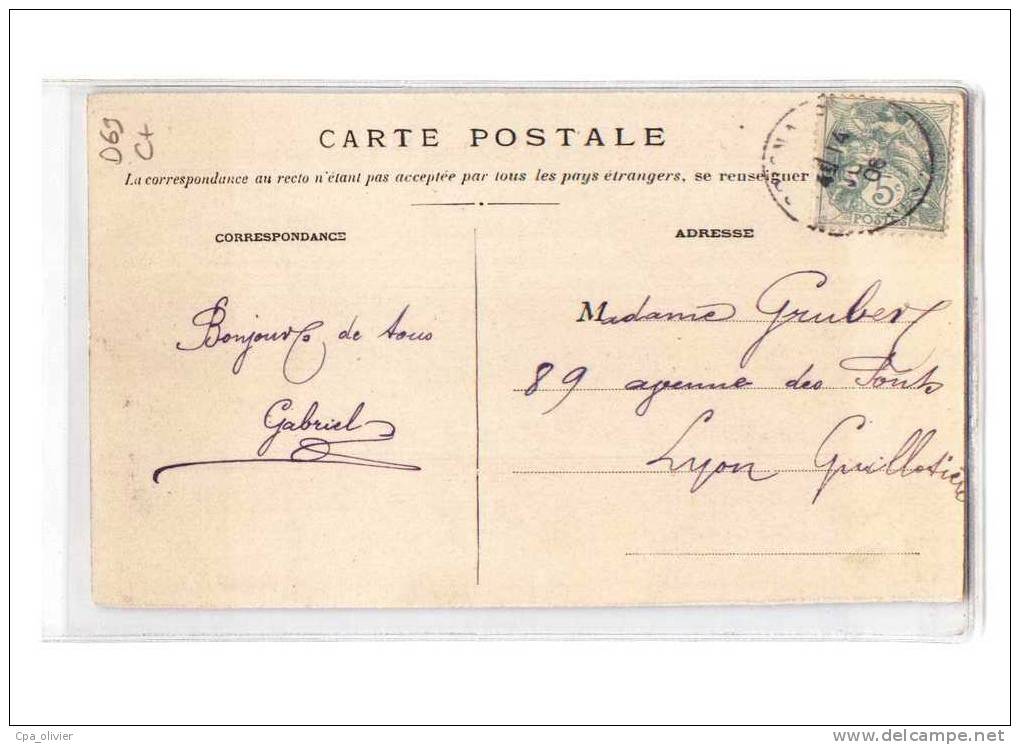 D69
C+
CARTE POSTALE
La correspondance au recto n'étant pas acceptée par tous les pays étrangers, se renseigner
14
08
5c
POSTES
CORRESPONDANCE
ADRESSE
Bonjour de tous
Gabriel
Madame Gruber
89 avenue des Ponts
Lyon Guillotière
Cpa_olivier
http://www.delcampe.net